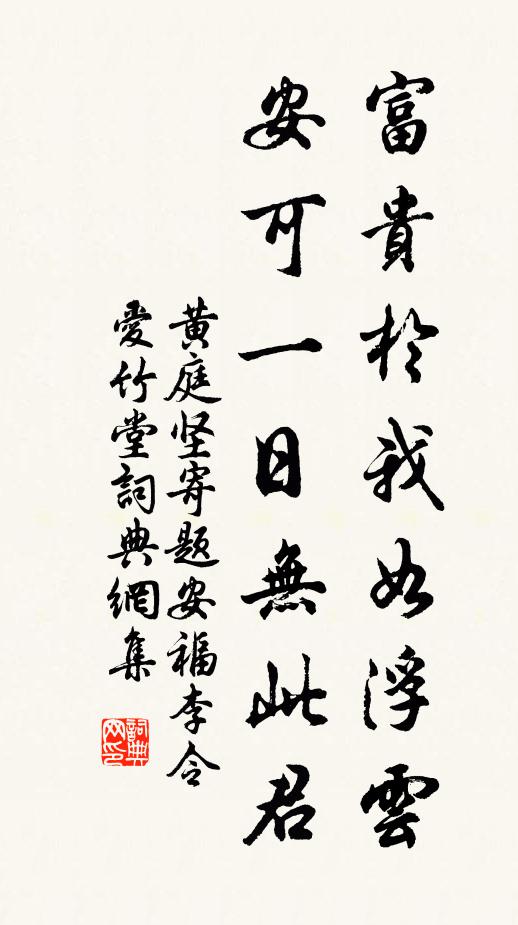 富貴於我如浮雲
安可一日無此君
黃庭坚寄题安福李令
愛竹堂詞典網集
詞典网印